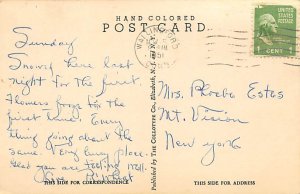 HAND COLORED
POST CARD
Sunday
Snowy here last
night for the first
flowers froze for the
first time. Every
thing going about the
same. Very busy place.
Glad you are feeling well.
Love
THIS SIDE FOR CORRESPONDENCE
Published by THE COLLOTYPE CO., Elizabeth, N. J. and N. Y.
WALLINGFORD
1 CENT 1
Mrs. Phoebe Estes
Mt. Vision
New York
THIS SIDE FOR ADDRESS